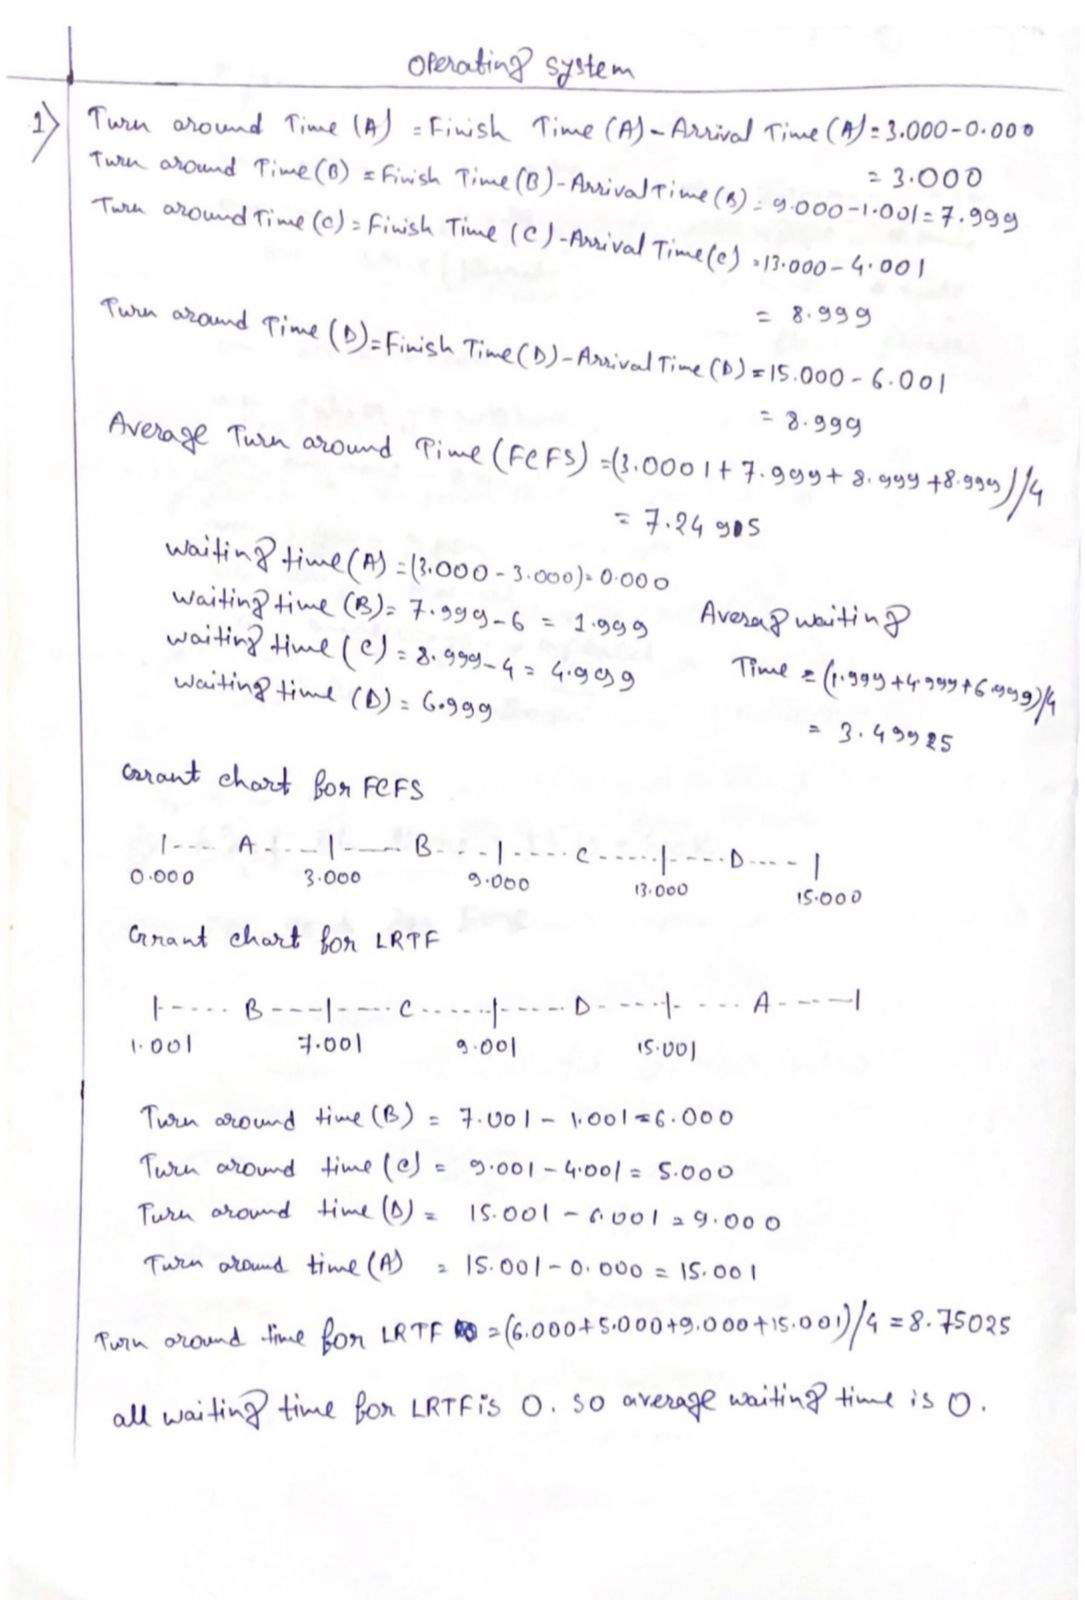 Operating system
1) Turn around Time (A) = Finish Time (A) - Arrival Time (A) = 3.000-0.000
= 3.000
Turn around Time (B) = Finish Time (B) - Arrival Time (B) = 9.000-1.001 = 7.999
Turn around Time (C) = Finish Time (C) - Arrival Time (C) = 13.000 - 4.001
= 8.999
Turn around Time (D) = Finish Time (D) - Arrival Time (D) = 15.000 - 6.001
= 8.999
Average Turn around Time (FCFS) = (3.0001 + 7.999 + 8.999 + 8.999)/4
= 7.24905
waiting time (A) = (3.000 - 3.000) = 0.000
waiting time (B) = 7.999 - 6 = 1.999
waiting time (C) = 8.999 - 4 = 4.999
waiting time (D) = 6.999
Averag waiting
Time = (1.999 + 4.999 + 6.999)/4
= 3.49925
Grant chart for FCFS
|---- A ----|---- B ---|---- C -----|----D----|
0.000 3.000 9.000 13.000 15.000
Grant chart for LRTF
|----- B ---|---- C -----|----- D ----|---- A ----|
1.001 7.001 9.001 15.001
Turn around time (B) = 7.001 - 1.001 = 6.000
Turn around time (C) = 9.001 - 4.001 = 5.000
Turn around time (D) = 15.001 - 6.001 = 9.000
Turn around time (A) = 15.001 - 0.000 = 15.001
Turn around time for LRTF = (6.000+5.000+9.000+15.001)/4 = 8.75025
all waiting time for LRTF is 0. so average waiting time is 0.